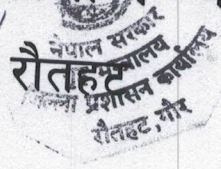 नेपाल सरकार
रौतहट
जिल्ला प्रशासन कार्यालय
रौतहट, गौर